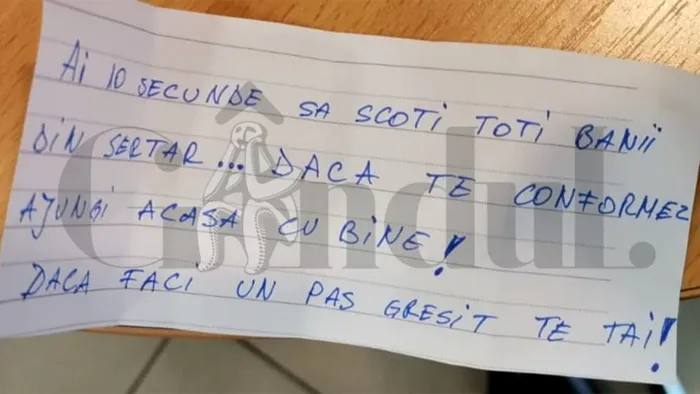 Ai 10 SECUNDE SA SCOTI TOTI BANII
DIN SERTAR... DACA TE CONFORMEZ
AJUNGI ACASA CU BINE!
DACA FACI UN PAS GRESIT TE TAI!
Gândul.